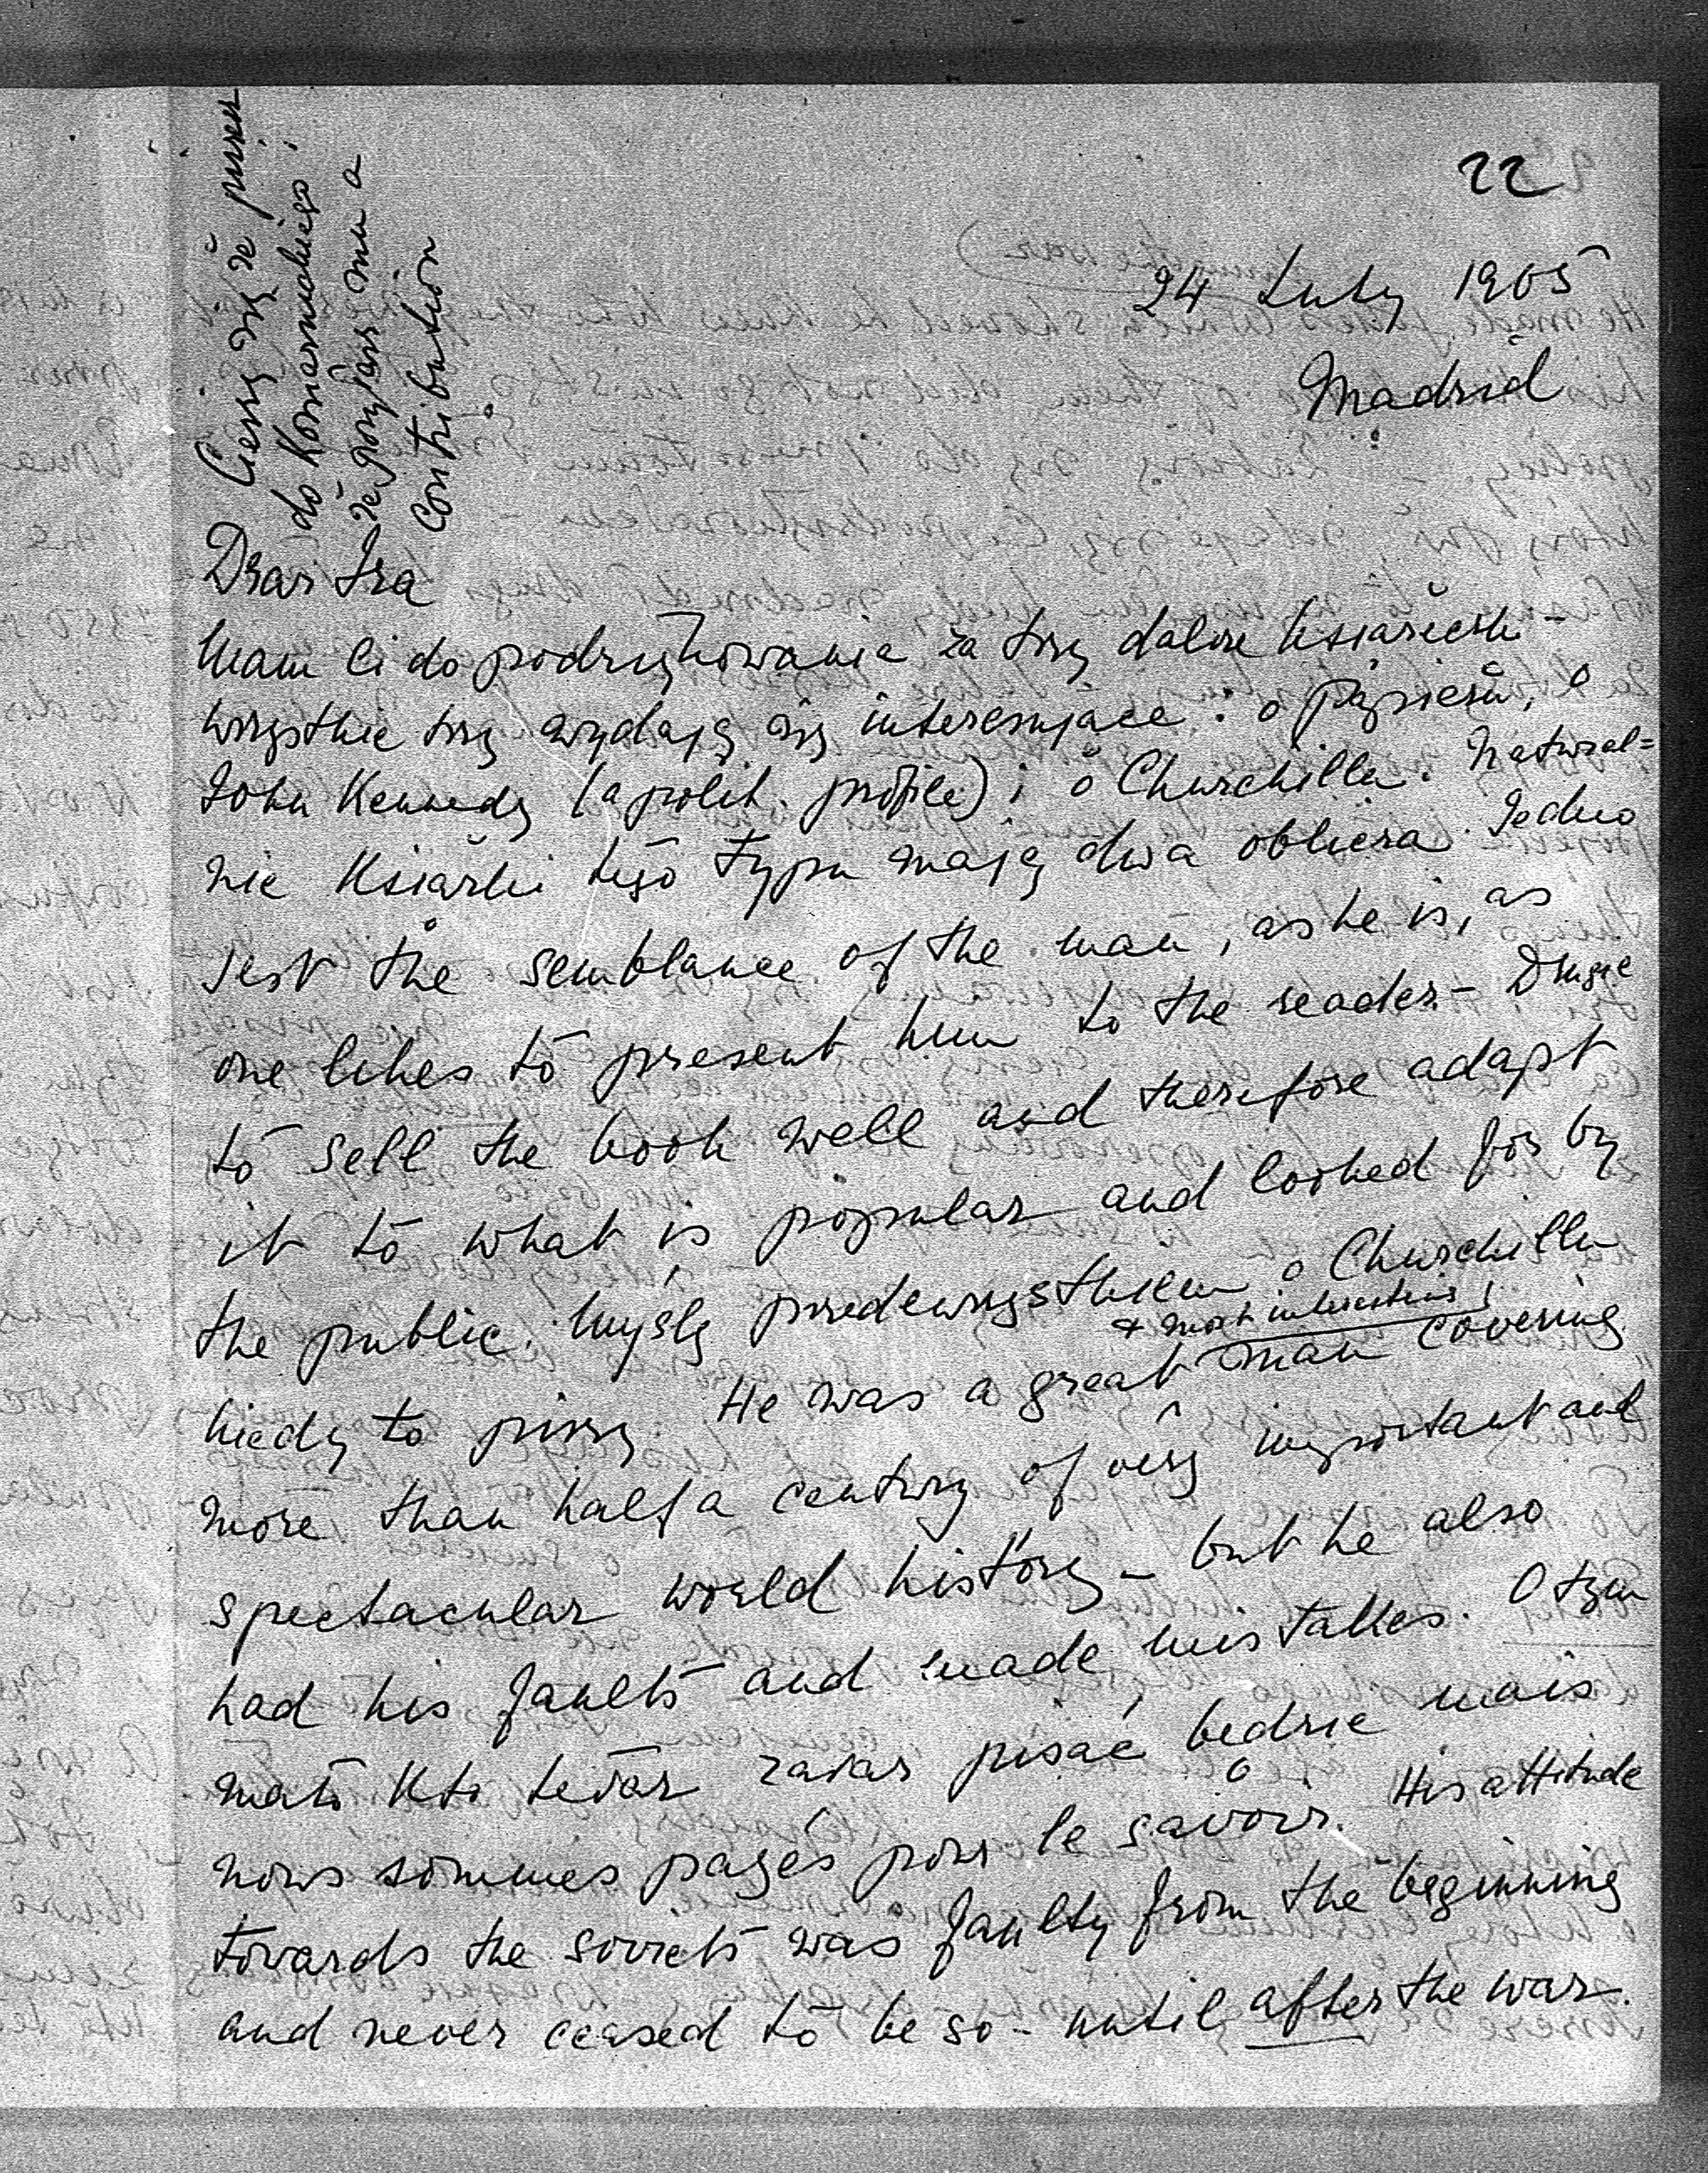 22
24 Luty 1965
Madrid
Cieszę się że piszesz
do Komarnickiego i
że posyłasz mu a
contribution
Drai Ira
Mam Ci do podziękowania za trzy dalsze książeczki -
wszystkie trzy wydają się interesujące: o Papieżu, o
John Kennedy (a polit. profile) i o Churchillu. Natural=
nie książki tego typu mają dwa oblicza. Jedno
jest the semblance of the man, as he is, as
one likes to present him to the reader - Drugie
to sell the book well and therefore adapt
it to what is popular and looked for by
the public. Myślę przedewszystkiem o Churchillu
& most interesting!
kiedy to piszę. He was a great man covering
more than half a century of very important and
spectacular world history - but he also
had his faults and made mistakes. O tym
mało kto teraz zaraz pisać będzie mais
nous sommes payés pour le savoir. His attitude
towards the soviets was faulty from the beginning
and never ceased to be so - until after the war.